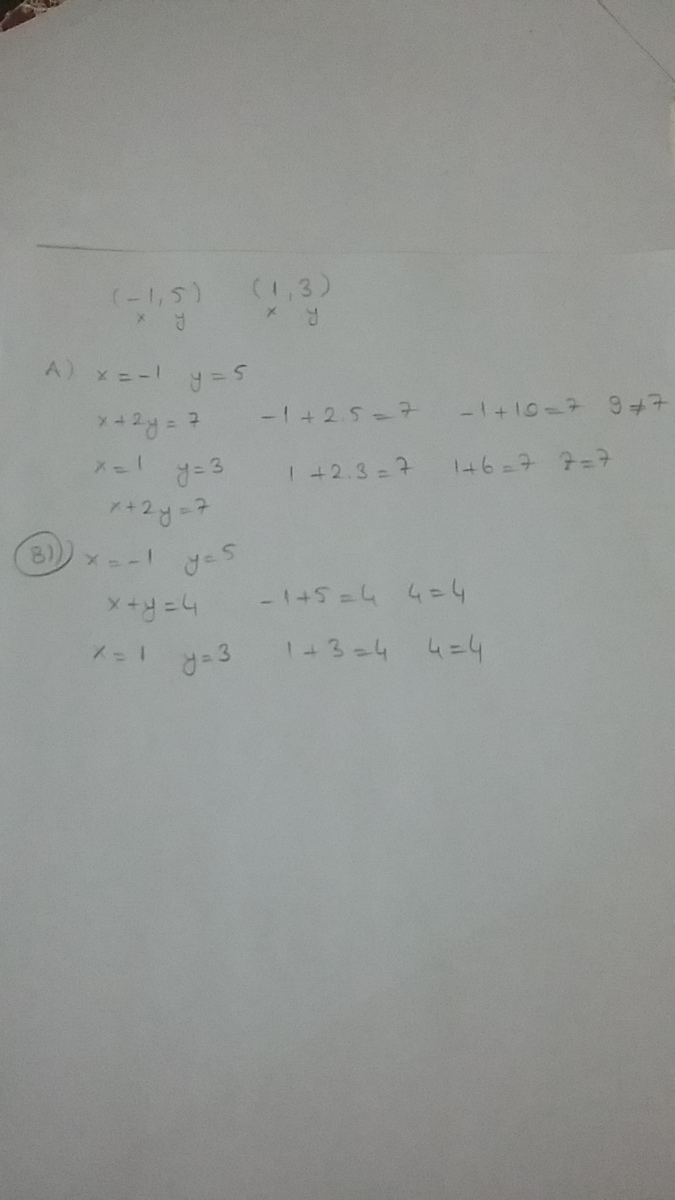 (-1,5) (1,3)
x y x y
A) x=-1 y=5
x+2y=7 -1+2.5=7 -1+10=7 9≠7
x=1 y=3 1+2.3=7 1+6=7 7=7
x+2y=7
B)) x=-1 y=5
x+y=4 -1+5=4 4=4
x=1 y=3 1+3=4 4=4